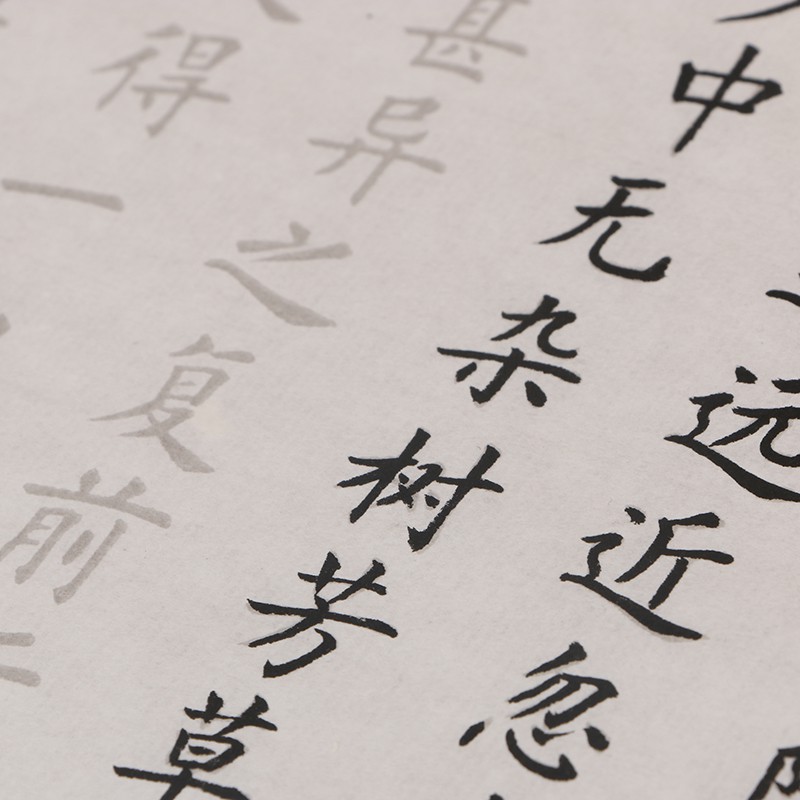 远近忽
中无杂树芳草
甚异之复前
得一